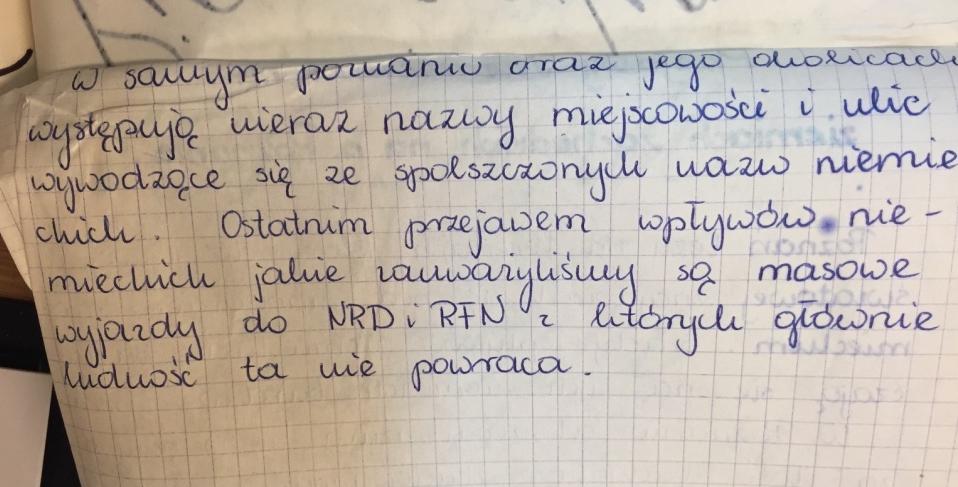 w samym poznaniu oraz jego okolicach
występują nieraz nazwy miejscowości i ulic
wywodzące się ze spolszczonych nazw niemie
ckich. Ostatnim przejawem wpływów nie-
mieckich jakie zauważyliśmy są masowe
wyjazdy do NRD i RFN z których głównie
ludność ta nie powraca.